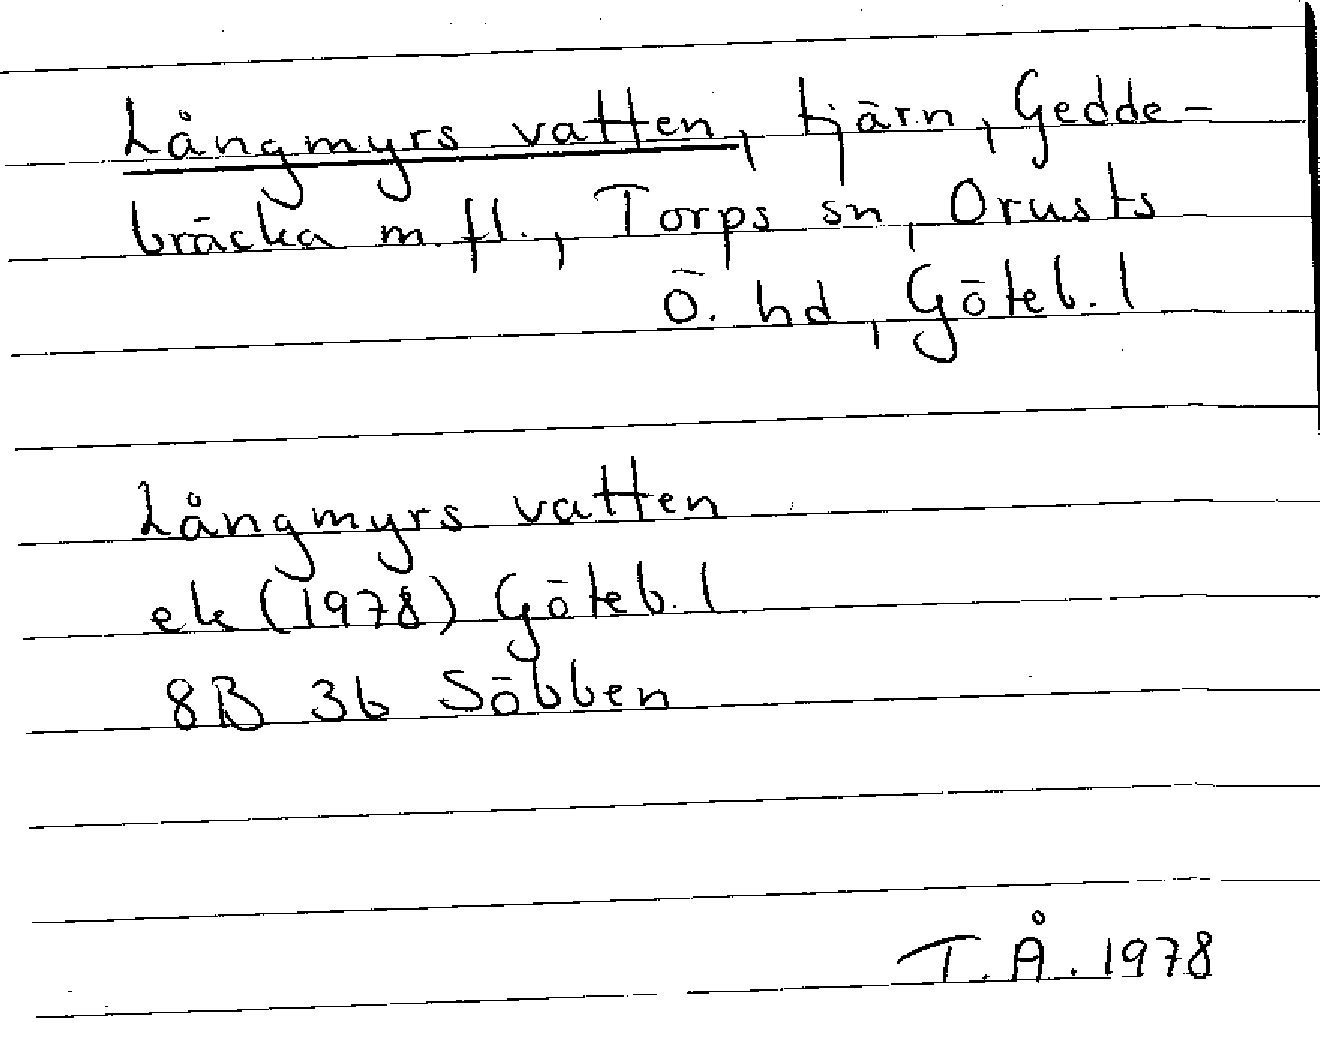 Långmyrs vatten, tjärn, Gedde-
bräcka m. fl., Torps sn, Orusts
Ö. hd, Göteb. l
Långmyrs vatten
ek (1978) Göteb. l
8B 3b Söbben
T. Å. 1978